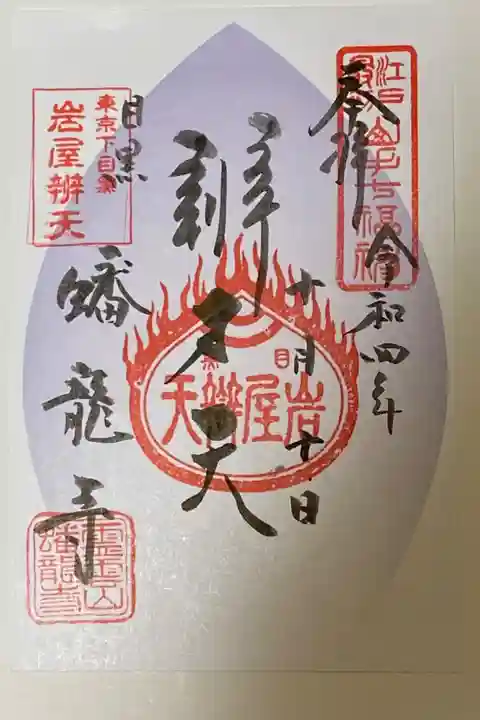 江戸最初山手七福神
奉拝 令和四年
十月十日
辨財天
目黒
岩屋辨天
東京下目黒
岩屋辨天
目黒
蟠龍寺
霊雲山
蟠龍寺